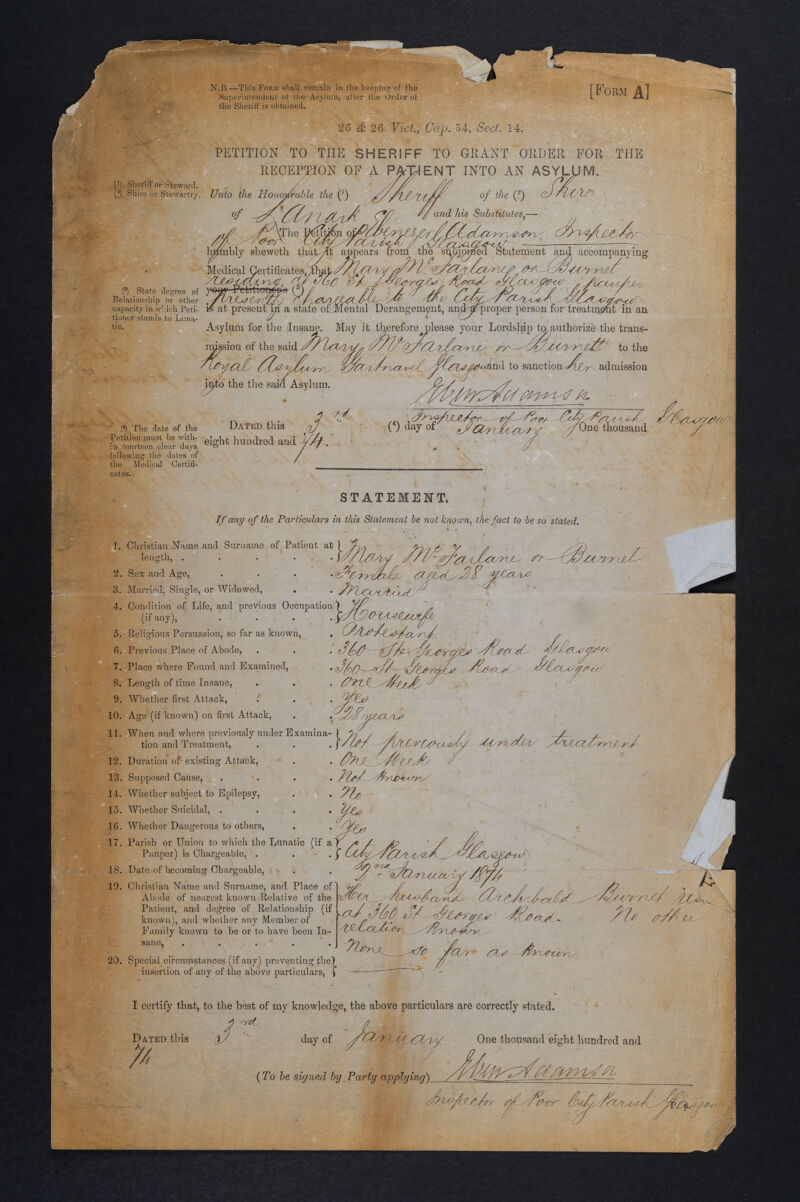 N.B.—This FORM shall remain in the keeping of the
Superintendent of the Asylum, after the Order of
the Sheriff is obtained.
[FORM A]
25 & 26 Vict., Cap. 54, Sect. 14.
PETITION TO THE SHERIFF TO GRANT ORDER FOR THE
RECEPTION OF A PATIENT INTO AN ASYLUM.
(1) Sheriff or Steward.
(2) Shire or Stewartry.
Unto the Honourable the (1) Sheriff of the (2) Shire
of Lanark and his Substitutes,—
The Petition of Ebenezer Adamson, Inspector
of Poor City Parish Glasgow
humbly sheweth that it appears from the subjoined Statement and accompanying
Medical Certificates, that Mary McFarlane or Burnet
residing at 360 St Georges Road Glasgow pauper
(3) State degree of
Relationship or other
capacity in which Peti-
tioner stands to Luna-
tic.
your Petitioner's (3)
presently Chargeable to the City Parish Glasgow
is at present in a state of Mental Derangement, and a proper person for treatment in an
Asylum for the Insane. May it therefore please your Lordship to authorize the trans-
mission of the said Mary McFarlane or Burnett to the
Royal Asylum Gartnavel Glasgow and to sanction her admission
into the the said Asylum.
Eben Adamson
Inspector of Poor City Parish Glasgow
(4) The date of the
Petition must be with-
in fourteen clear days
following the dates of
the Medical Certifi-
cates.
DATED this 3rd (4) day of January One thousand
eight hundred and 74.
STATEMENT.
If any of the Particulars in this Statement be not known, the fact to be so stated.
1. Christian Name and Surname of Patient at
length, . Mary McFarlane or Burnet
2. Sex and Age, Female aged 28 years
3. Married, Single, or Widowed, Married
4. Condition of Life, and previous Occupation
(if any), Housewife
5. Religious Persuasion, so far as known, Protestant
6. Previous Place of Abode, 360 St Georges Road Glasgow
7. Place where Found and Examined, 360 St Georges Road Glasgow
8. Length of time Insane, One Week
9. Whether first Attack, Yes
10. Age (if known) on first Attack, 28 years
11. When and where previously under Examina-
tion and Treatment, Not previously under treatment
12. Duration of existing Attack, One Week
13. Supposed Cause, Not known
14. Whether subject to Epilepsy, No
15. Whether Suicidal, Yes
16. Whether Dangerous to others, Yes
17. Parish or Union to which the Lunatic (if a
Pauper) is Chargeable, City Parish Glasgow
18. Date of becoming Chargeable, 2nd January 1874
19. Christian Name and Surname, and Place of
Abode of nearest known Relative of the
Patient, and degree of Relationship (if
known), and whether any Member of
Family known to be or to have been In-
sane,
Her husband Archibald Burnet
at 360 St Georges Road. No other
relation known
None so far as known
20. Special circumstances (if any) preventing the
insertion of any of the above particulars,
I certify that, to the best of my knowledge, the above particulars are correctly stated.
DATED this 3rd day of January One thousand eight hundred and
74
(To be signed by Party applying) Eben Adamson
Inspector of Poor City Parish Glasgow